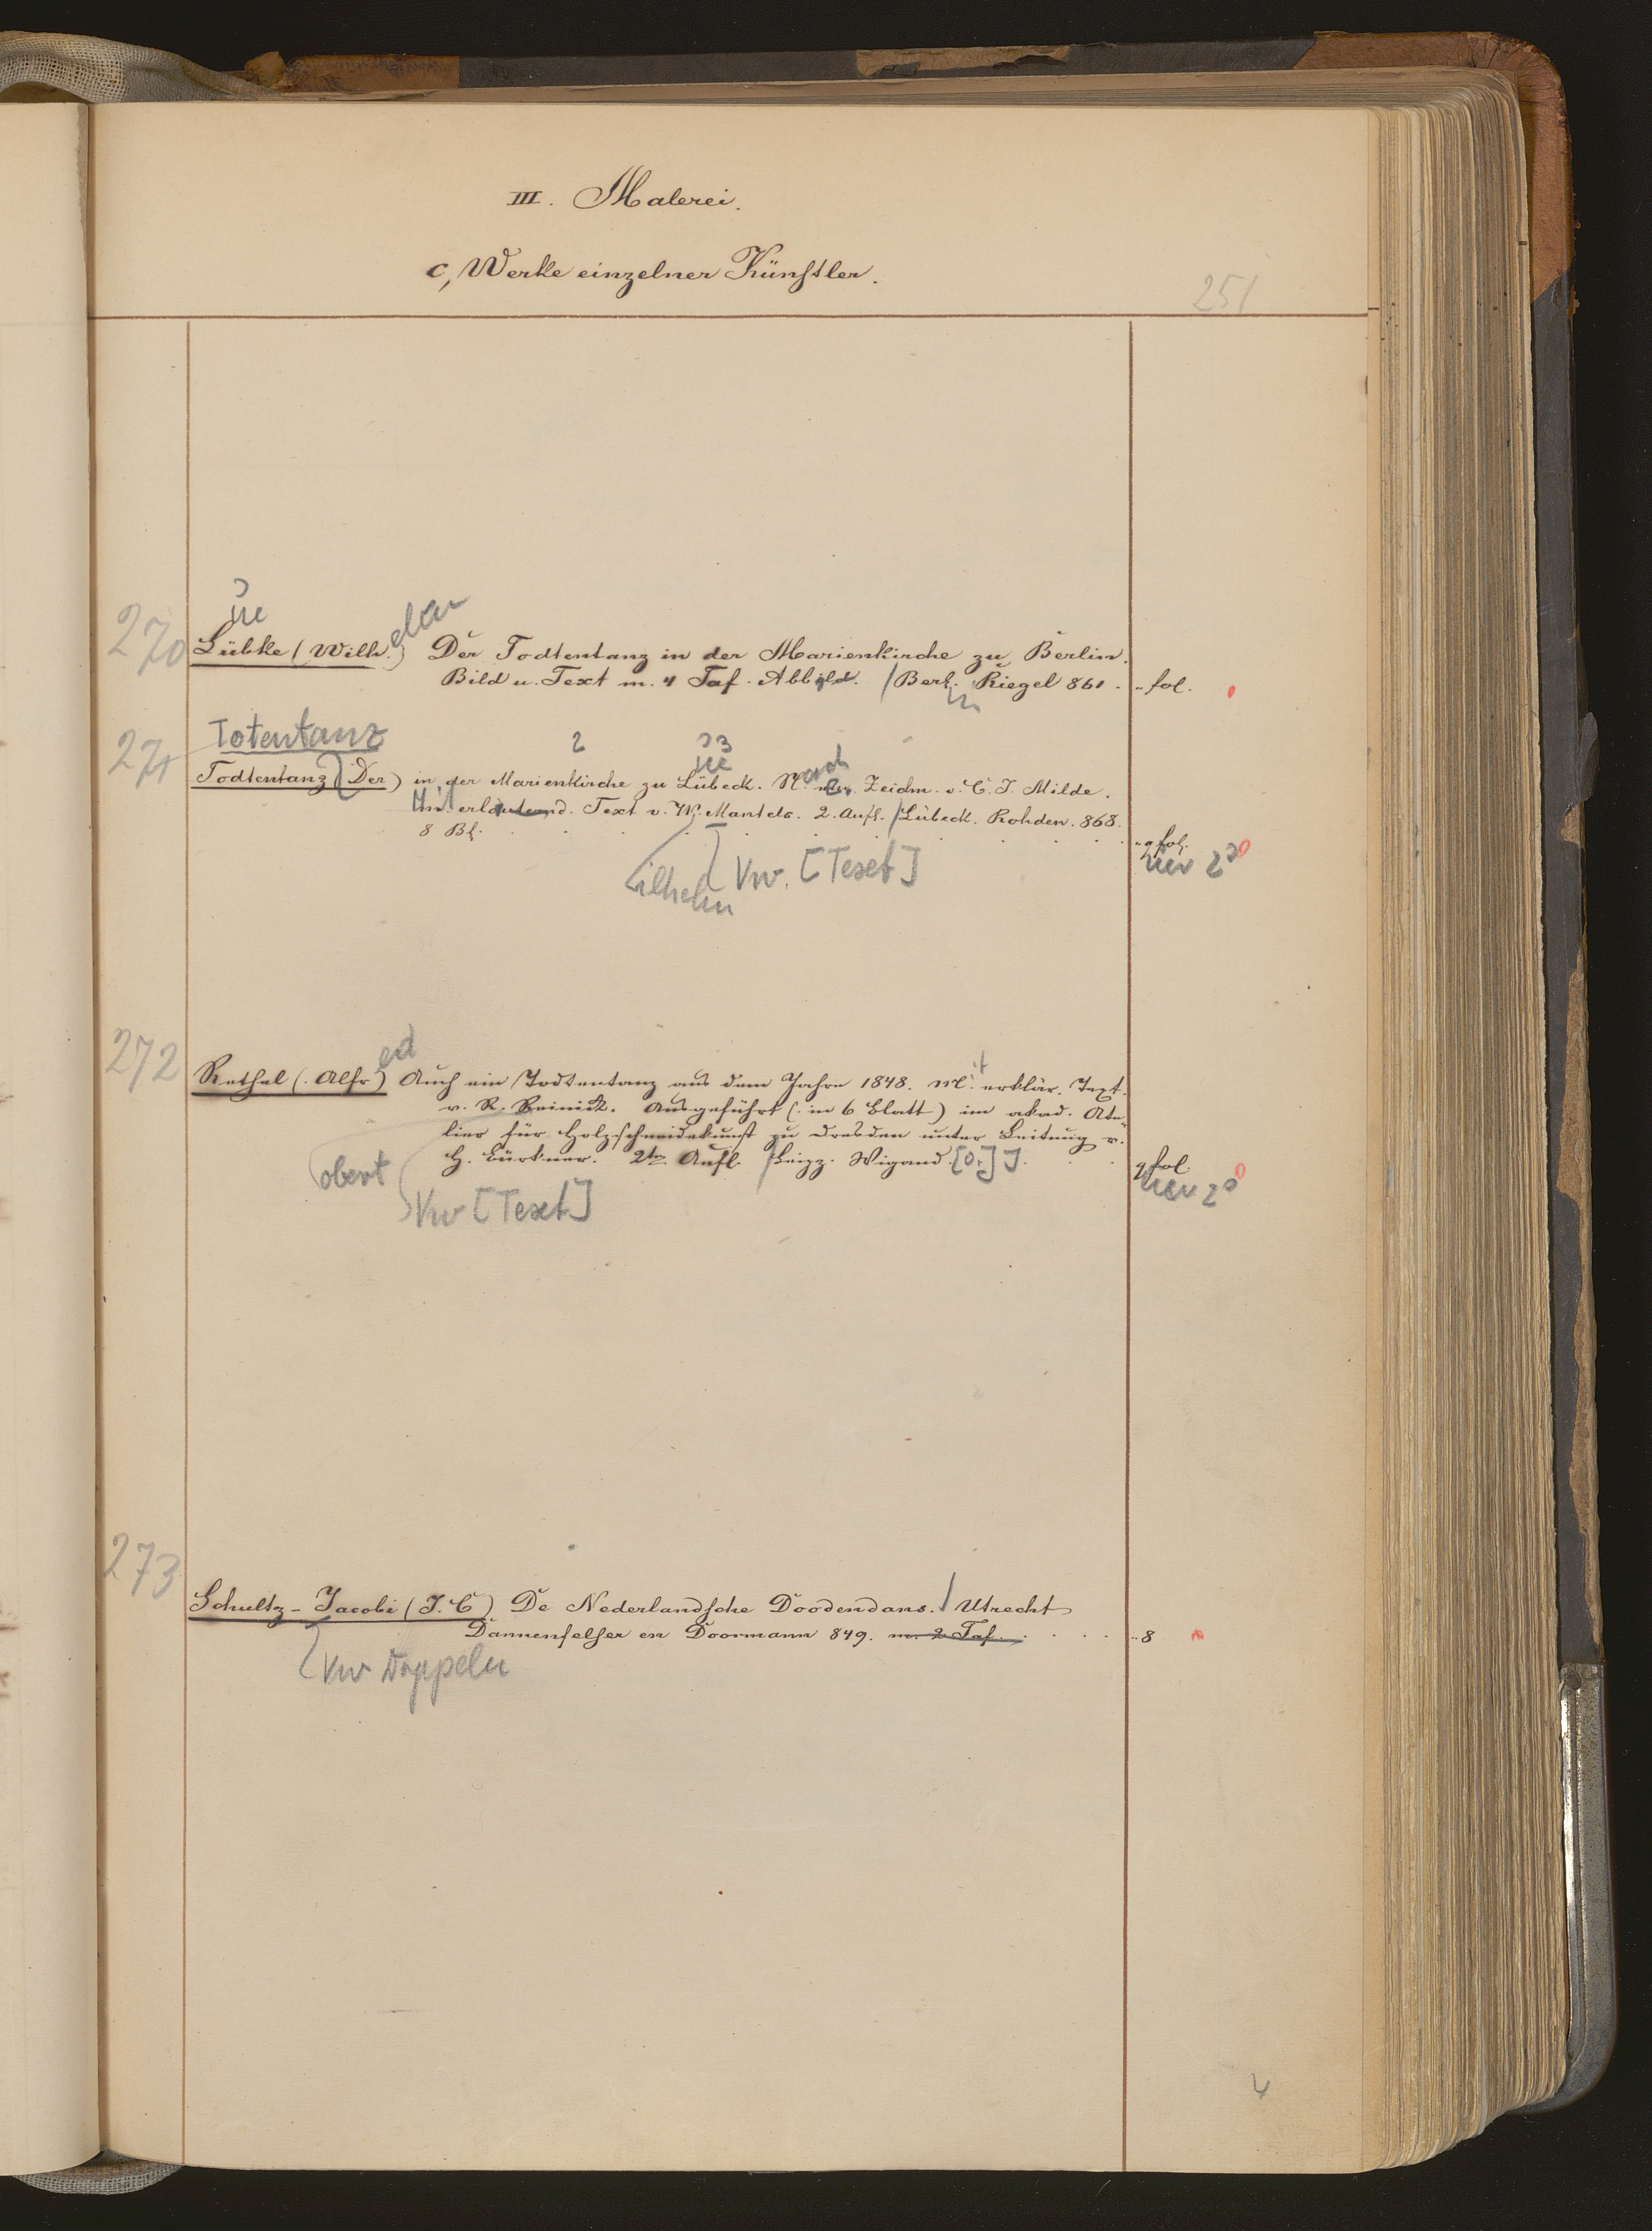 III. Malerei.
c, Werke einzelner Künstler.
251
ue
elm
270 Lübke (Wilh.) Der Todtentanz in der Marienkirche zu Berlin.
Bild u. Text m. 4 Taf. Abbild. / Berl. Riegel 861. fol.
in
Totentanz 2 33
ue
ach
271 Todtentanz (Der) in der Marienkirche zu Lübeck. N. Zeichn. v. C. J. Milde.
Mit erläuternd. Text v. W. Mantels. 2. Aufl. / Lübeck. Rohden. 868.
8 Bl. q fol.
ilhelm Vw. [Text] 2°
ed
it
272 Rethel (Alfr.) Auch ein Todtentanz aus dem Jahre 1848. M. erklär. Text.
v. R. Reinick. Ausgeführt (in 6 Blatt) im akad. Ate-
lier für Holzschneidekunst zu Dresden unter Leitung v.
H. Bürkner. 2te Aufl. / Leipz. Wigand. [o. J.] q fol.
obert 2°
Vw [Text]
273 Schultz-Jacobi (J. C) De Nederlandsche Doodendans. / Utrecht
Dannenfelser en Doormann 849. m. 2 Taf. 8
Vw Doppeln